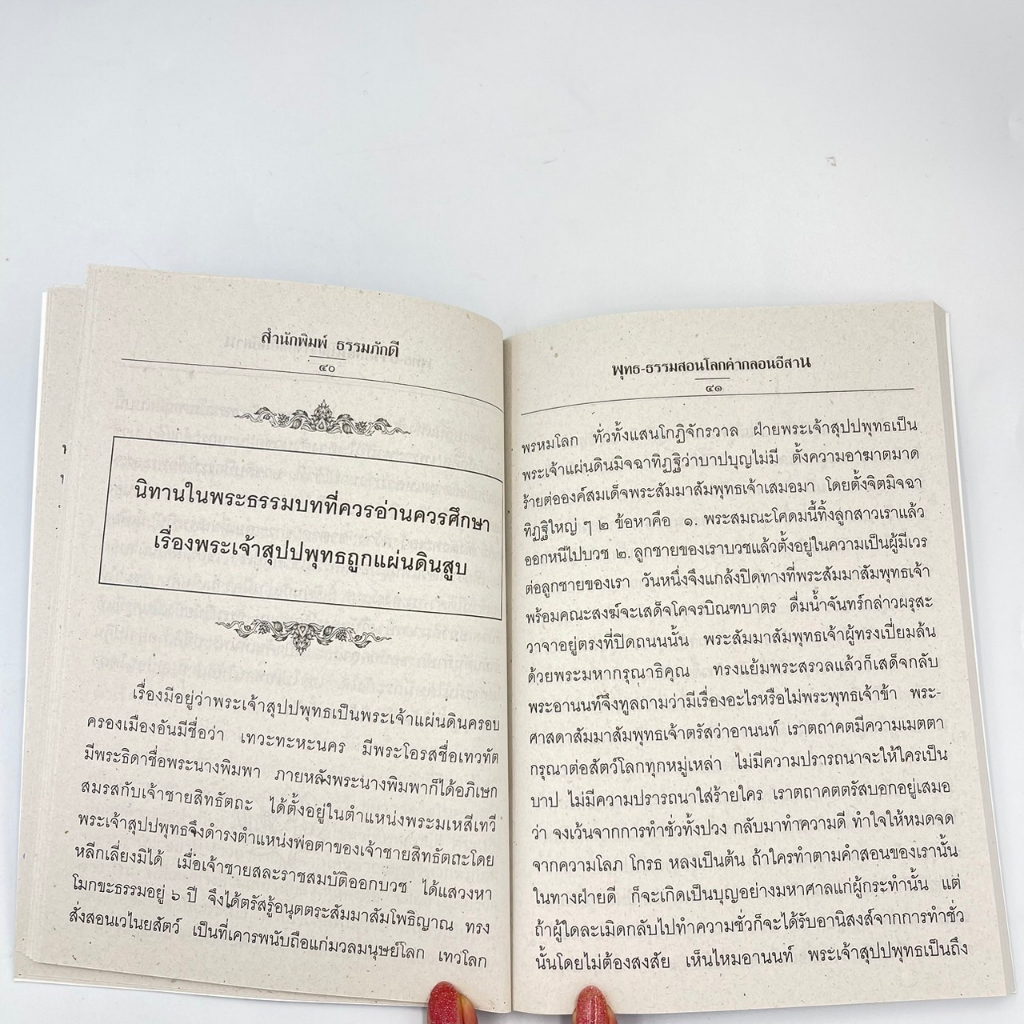 สำนักพิมพ์ ธรรมภักดี
๔๐
นิทานในพระธรรมบทที่ควรอ่านควรศึกษา
เรื่องพระเจ้าสุปปพุทธถูกแผ่นดินสูบ
เรื่องมีอยู่ว่าพระเจ้าสุปปพุทธเป็นพระเจ้าแผ่นดินครอบ
ครองเมืองอันมีชื่อว่า เทวะทะหะนคร มีพระโอรสชื่อเทวทัต
มีพระธิดาชื่อพระนางพิมพา ภายหลังพระนางพิมพาก็ได้อภิเษก
สมรสกับเจ้าชายสิทธัตถะ ได้ตั้งอยู่ในตำแหน่งพระมเหสีเทวี
พระเจ้าสุปปพุทธจึงดำรงตำแหน่งพ่อตาของเจ้าชายสิทธัตถะโดย
หลีกเลี่ยงมิได้ เมื่อเจ้าชายสละราชสมบัติออกบวช ได้แสวงหา
โมกขะธรรมอยู่ ๖ ปี จึงได้ตรัสรู้อนุตตระสัมมาสัมโพธิญาณ ทรง
สั่งสอนเวไนยสัตว์ เป็นที่เคารพนับถือแก่มวลมนุษย์โลก เทวโลก
พุทธ-ธรรมสอนโลกคำกลอนอีสาน
๔๑
พรหมโลก ทั่วทั้งแสนโกฏิจักรวาล ฝ่ายพระเจ้าสุปปพุทธเป็น
พระเจ้าแผ่นดินมิจฉาทิฏฐิว่าบาปบุญไม่มี ตั้งความอาฆาตมาด
ร้ายต่อองค์สมเด็จพระสัมมาสัมพุทธเจ้าเสมอมา โดยตั้งจิตมิจฉา
ทิฏฐิใหญ่ ๆ ๒ ข้อหาคือ ๑. พระสมณะโคดมนี้ทิ้งลูกสาวเราแล้ว
ออกหนีไปบวช ๒. ลูกชายของเราบวชแล้วตั้งอยู่ในความเป็นผู้มีเวร
ต่อลูกชายของเรา วันหนึ่งจึงแกล้งปิดทางที่พระสัมมาสัมพุทธเจ้า
พร้อมคณะสงฆ์จะเสด็จโคจรบิณฑบาตร ดื่มน้ำจันทร์กล่าวผรุสะ
วาจาอยู่ตรงที่ปิดถนนนั้น พระสัมมาสัมพุทธเจ้าผู้ทรงเปี่ยมล้น
ด้วยพระมหากรุณาธิคุณ ทรงแย้มพระสรวลแล้วก็เสด็จกลับ
พระอานนท์จึงทูลถามว่ามีเรื่องอะไรหรือไม่พระพุทธเจ้าข้า พระ-
ศาสดาสัมมาสัมพุทธเจ้าตรัสว่าอานนท์ เราตถาคตมีความเมตตา
กรุณาต่อสัตว์โลกทุกหมู่เหล่า ไม่มีความปรารถนาจะให้ใครเป็น
บาป ไม่มีความปรารถนาใส่ร้ายใคร เราตถาคตตรัสบอกอยู่เสมอ
ว่า จงเว้นจากการทำชั่วทั้งปวง กลับมาทำความดี ทำใจให้หมดจด
จากความโลภ โกรธ หลงเป็นต้น ถ้าใครทำตามคำสอนของเรานั้น
ในทางฝ่ายดี ก็จะเกิดเป็นบุญอย่างมหาศาลแก่ผู้กระทำนั้น แต่
ถ้าผู้ใดละเมิดกลับไปทำความชั่วก็จะได้รับอานิสงส์จากการทำชั่ว
นั้นโดยไม่ต้องสงสัย เห็นไหมอานนท์ พระเจ้าสุปปพุทธเป็นถึง